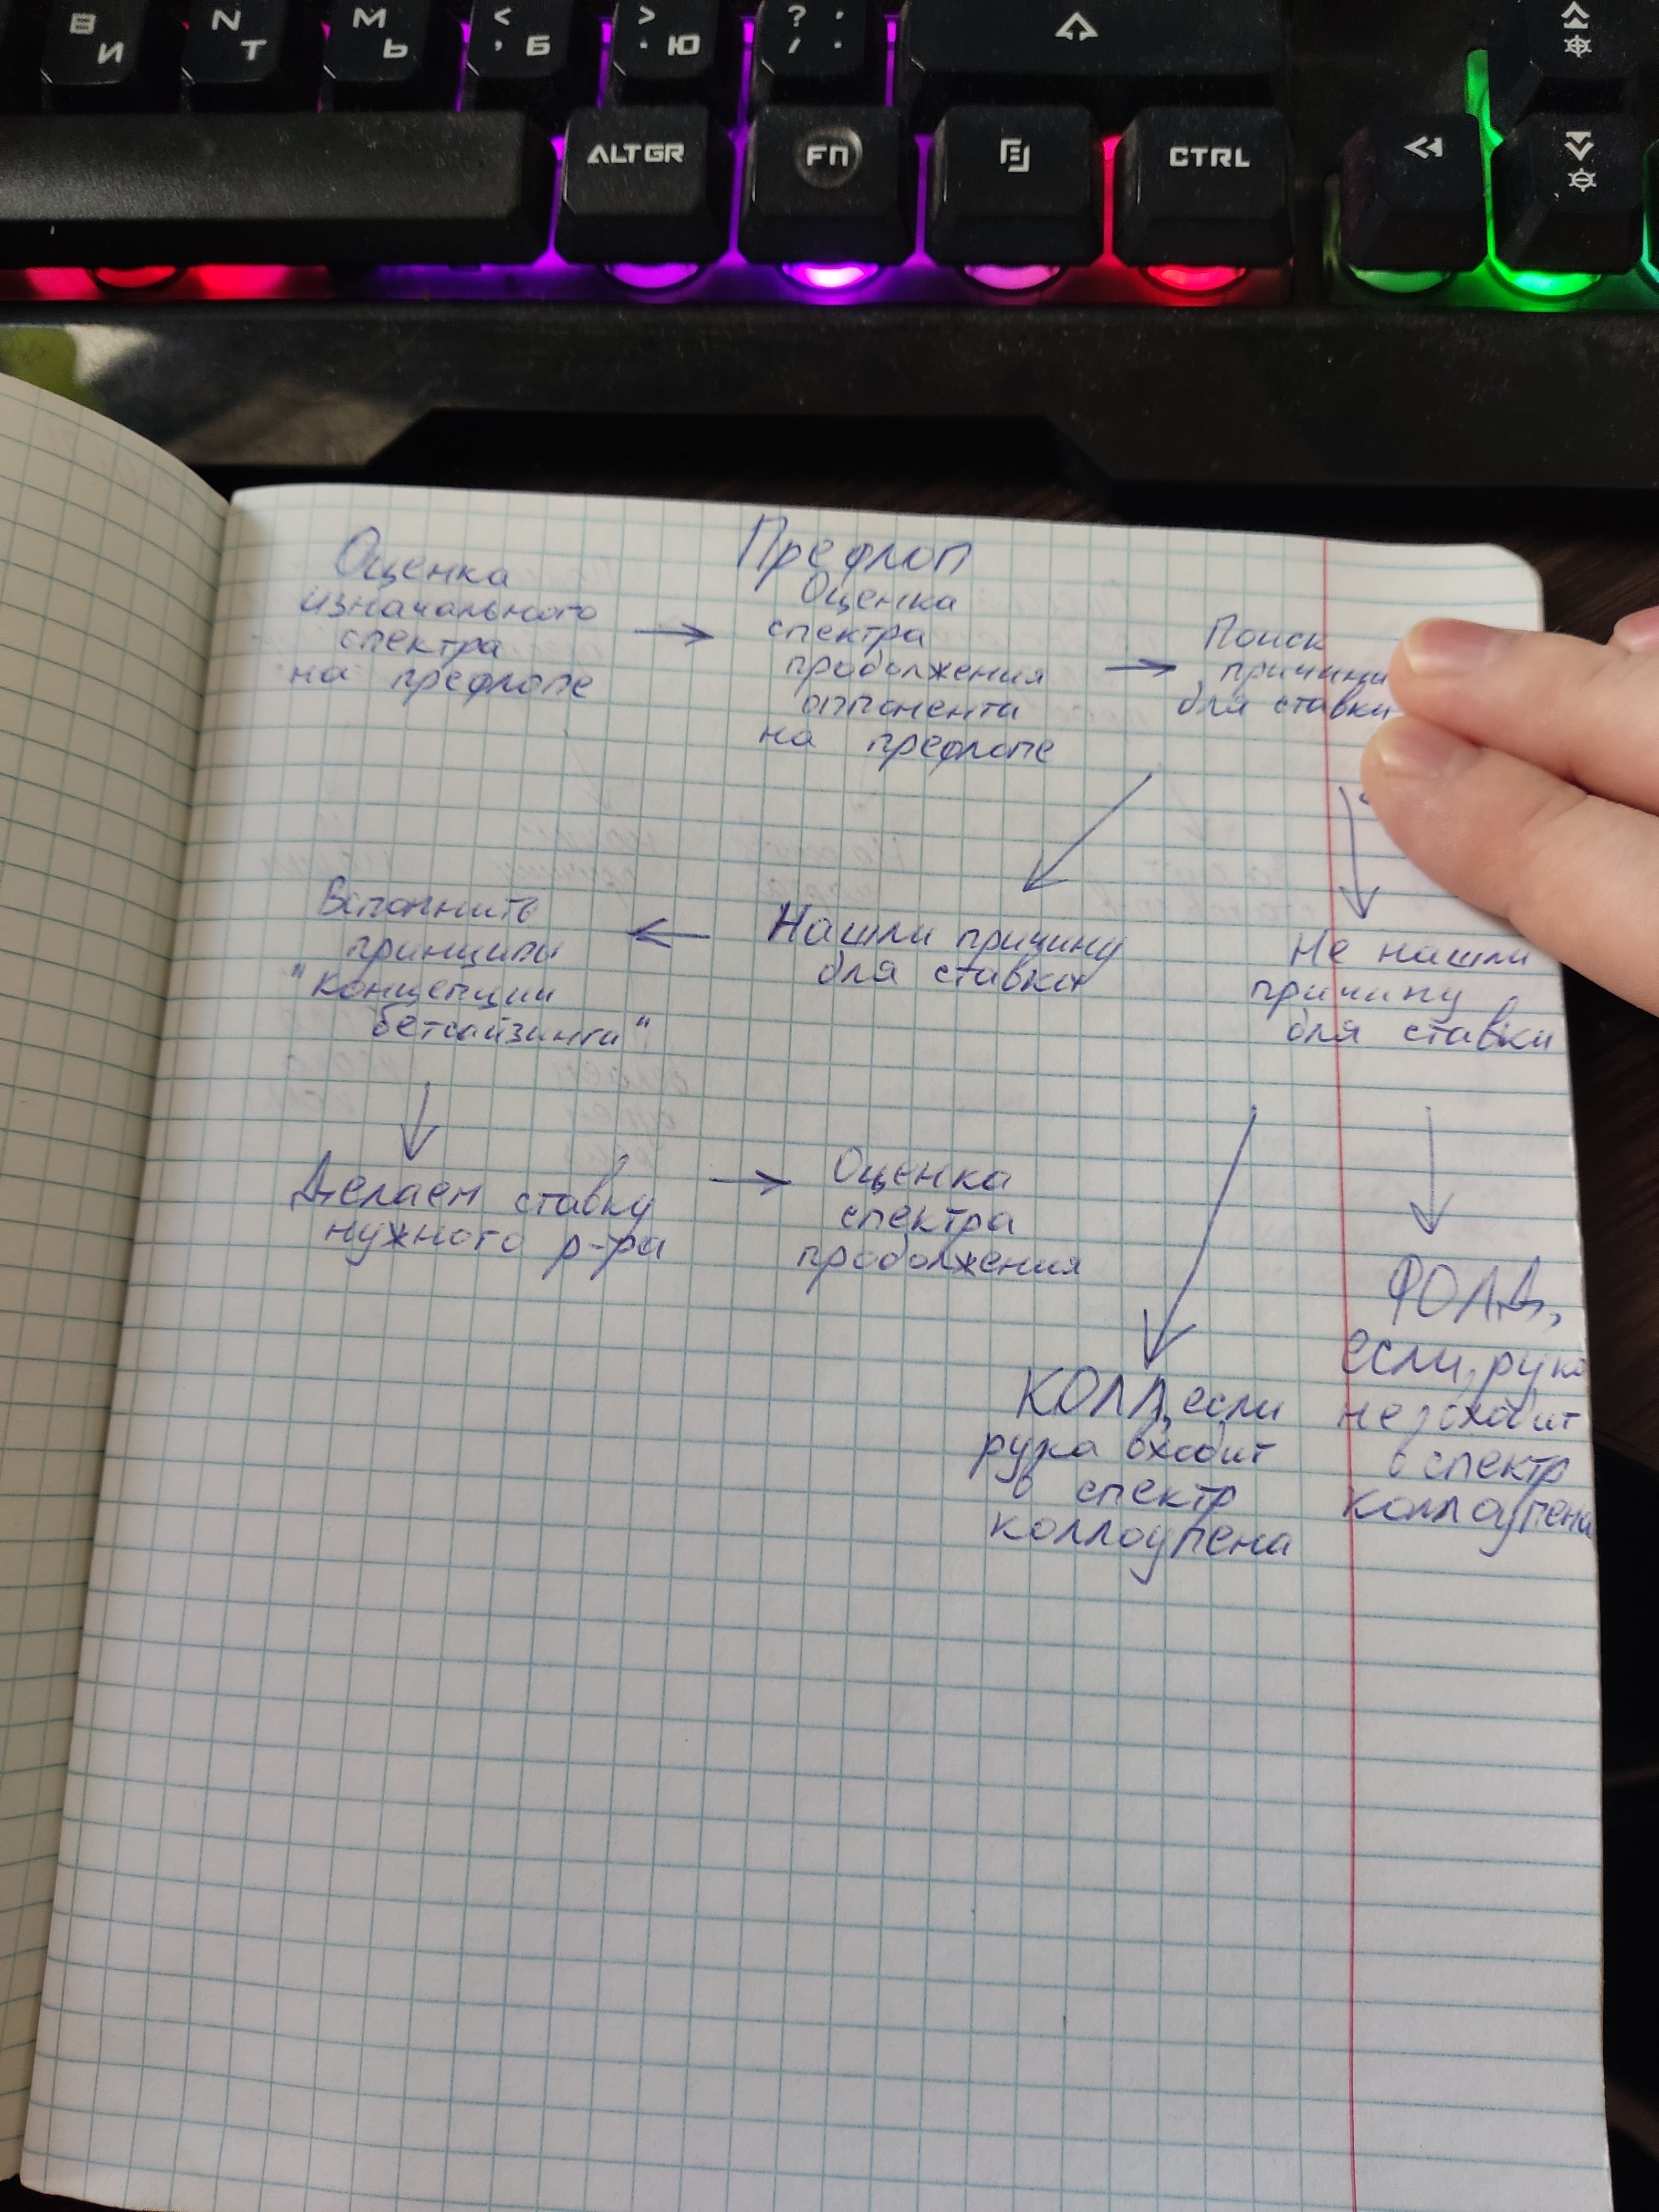 В И
N Т
М Ь
< , Б
> . Ю
? / : .
ALT GR
FN
CTRL
Префлоп
Оценка
изначального
спектра
на префлопе
Оценка
спектра
продолжения
оппонента
на префлопе
Поиск
причины
для ставки
Вспомнить
принципы
"Концепции
бетсайзинга"
Нашли причину
для ставки
Не нашли
причину
для ставки
Делаем ставку
нужного р-ра
Оценка
спектра
продолжения
КОЛЛ, если
рука входит
в спектр
коллоупена
ФОЛД,
если рука
не входит
в спектр
коллоупена